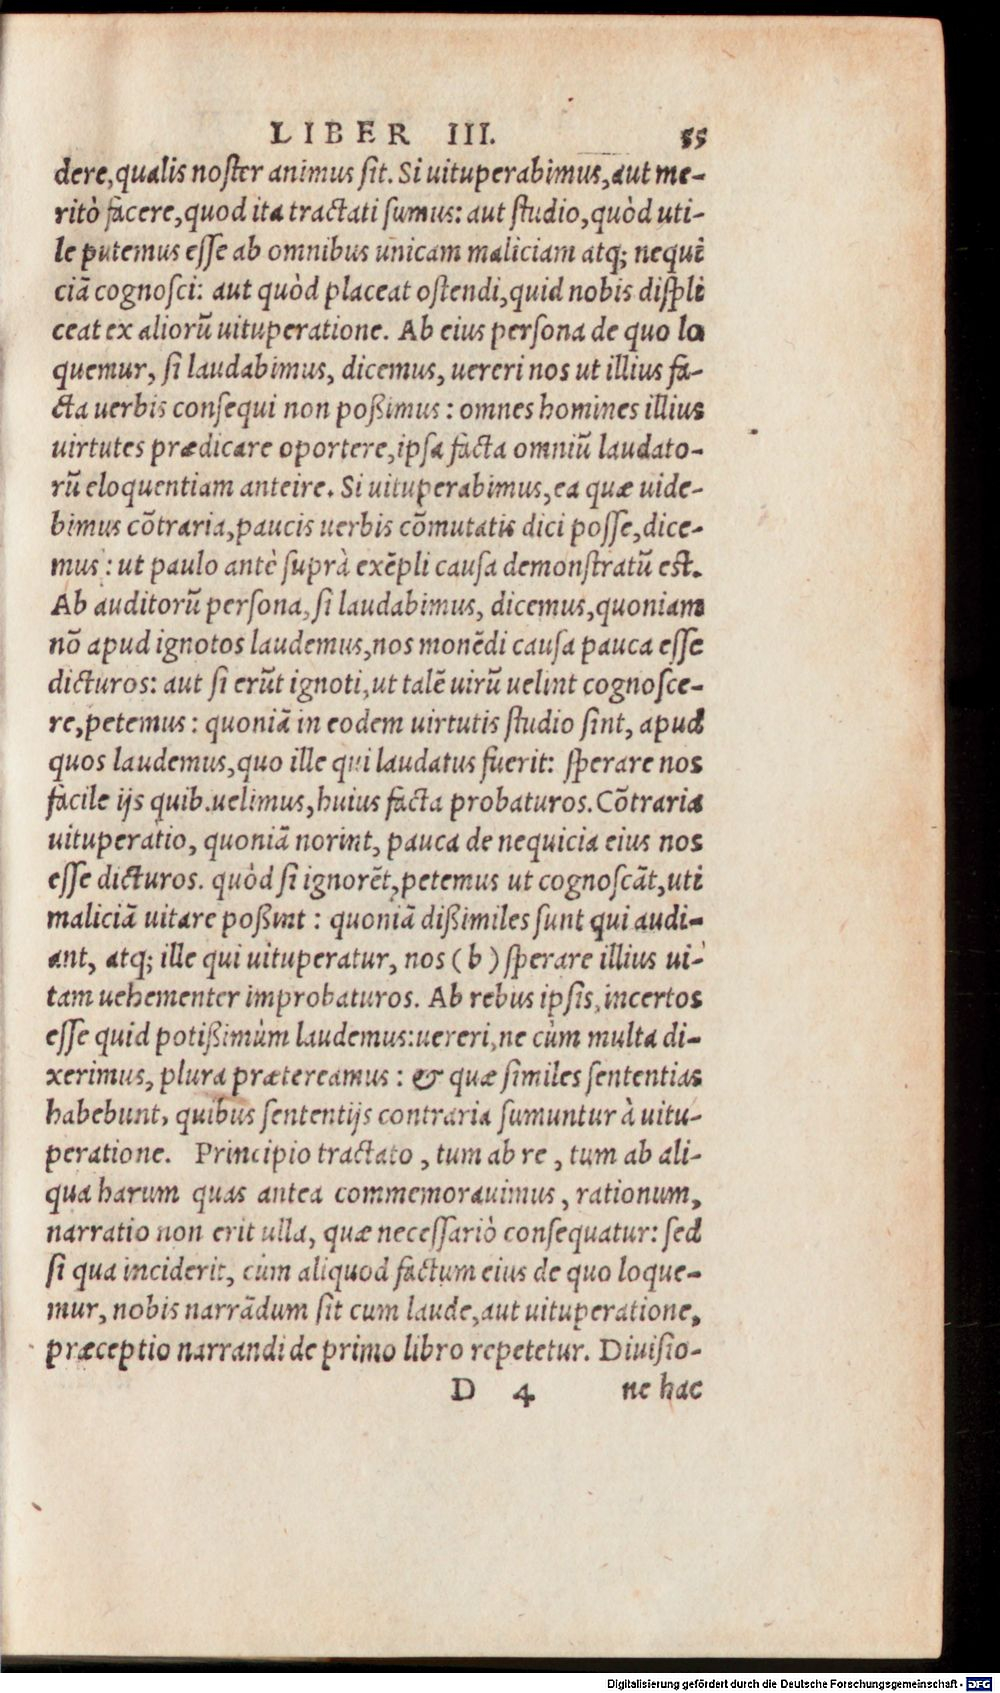 LIBER III. 55
dere, qualis noster animus sit. Si uituperabimus, aut me-
ritò facere, quod ita tractati sumus: aut studio, quòd uti-
le putemus esse ab omnibus unicam maliciam atq; nequi
ciā cognosci: aut quòd placeat ostendi, quid nobis displi
ceat ex aliorū uituperatione. Ab eius persona de quo lo
quemur, si laudabimus, dicemus, uereri nos ut illius fa-
cta uerbis consequi non poßimus: omnes homines illius
uirtutes prædicare oportere, ipsa facta omniū laudato-
rū eloquentiam anteire. Si uituperabimus, ea quæ uide-
bimus cōtraria, paucis uerbis cōmutatis dici posse, dice-
mus: ut paulo antè suprà exēpli causa demonstratū est.
Ab auditorū persona, si laudabimus, dicemus, quoniam
nō apud ignotos laudemus, nos monēdi causa pauca esse
dicturos: aut si erūt ignoti, ut talē uirū uelint cognosce-
re, petemus: quoniā in eodem uirtutis studio sint, apud
quos laudemus, quo ille qui laudatus fuerit: sperare nos
facile ijs quib. uelimus, huius facta probaturos. Cōtraria
uituperatio, quoniā norint, pauca de nequicia eius nos
esse dicturos. quòd si ignorēt, petemus ut cognoscāt, uti
maliciā uitare poßint: quoniā dißimiles sunt qui audi-
ant, atq; ille qui uituperatur, nos (b) sperare illius ui-
tam uehementer improbaturos. Ab rebus ipsis, incertos
esse quid potißimùm laudemus: uereri, ne cùm multa di-
xerimus, plura prætereamus: & quæ similes sententias
habebunt, quibus sententijs contraria sumuntur à uitu-
peratione. Principio tractato, tum ab re, tum ab ali-
qua harum quas antea commemorauimus, rationum,
narratio non erit ulla, quæ necessariò consequatur: sed
si qua inciderit, cùm aliquod factum eius de quo loque-
mur, nobis narrādum sit cum laude, aut uituperatione,
præceptio narrandi de primo libro repetetur. Diuisio-
D 4 ne hac
Digitalisierung gefördert durch die Deutsche Forschungsgemeinschaft - DFG